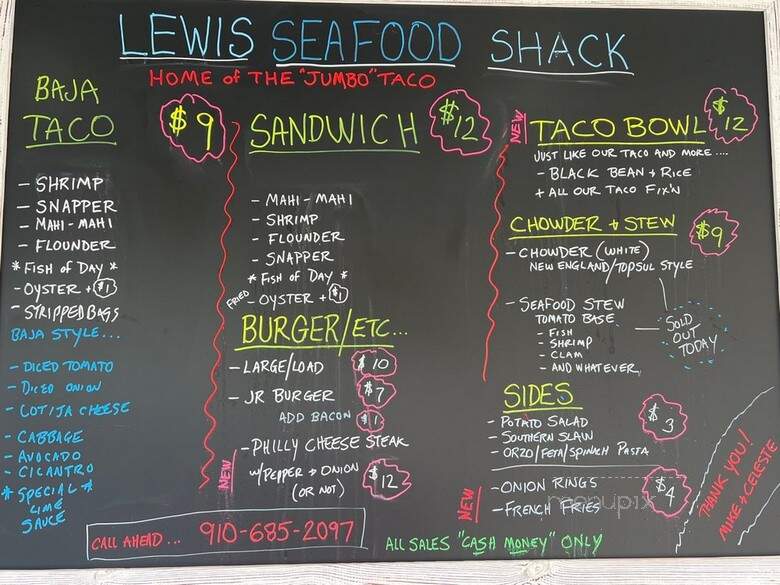 LEWIS SEAFOOD SHACK
HOME of THE "JUMBO" TACO
BAJA
TACO
$9
- SHRIMP
- SNAPPER
- MAHI-MAHI
- FLOUNDER
* FISH of DAY *
- OYSTER + $1
- STRIPPEDBAGS
BAJA STYLE...
- DICED TOMATO
- DICED ONION
- COTIJA CHEESE
- CABBAGE
- AVOCADO
- CILANTRO
* SPECIAL *
LIME
SAUCE
SANDWICH
$12
- MAHI-MAHI
- SHRIMP
- FLOUNDER
- SNAPPER
* FISH of DAY *
FRIED - OYSTER + $1
BURGER/ETC...
- LARGE/LOAD $10
- JR BURGER $7
ADD BACON $1
NEW
- PHILLY CHEESE STEAK
W/PEPPER + ONION
(OR NOT)
$12
NEW
TACO BOWL
$12
JUST LIKE OUR TACO AND MORE....
- BLACK BEAN + RICE
+ ALL OUR TACO FIX'N
CHOWDER + STEW
$9
- CHOWDER (WHITE)
NEW ENGLAND/TOPSUL STYLE
- SEAFOOD STEW
TOMATO BASE
- FISH
- SHRIMP
- CLAM
- AND WHATEVER
SOLD
OUT
TODAY
SIDES
- POTATO SALAD
- SOUTHERN SLAW
- ORZO/FETA/SPINACH PASTA
$3
NEW
- ONION RINGS
- FRENCH FRIES
$4
menupix
THANK YOU!
MIKE & CELESTE
CALL AHEAD... 910-685-2097
ALL SALES "CASH MONEY" ONLY